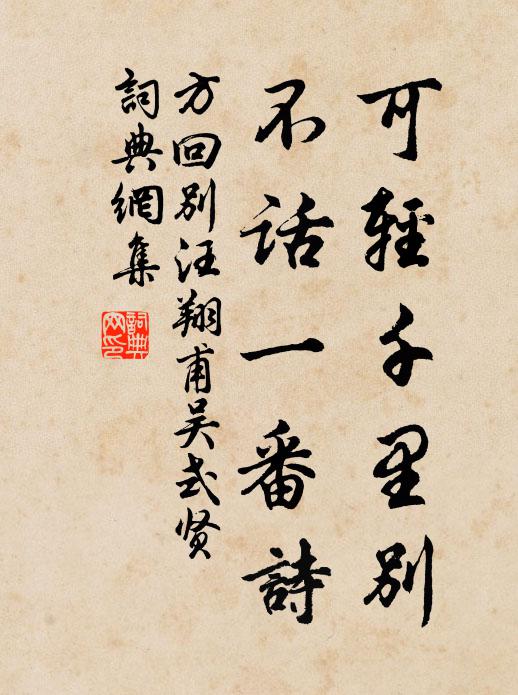 可輕千里别
不话一番詩
方回别汪翔甫吴式贤
詞典網集
詞典網印